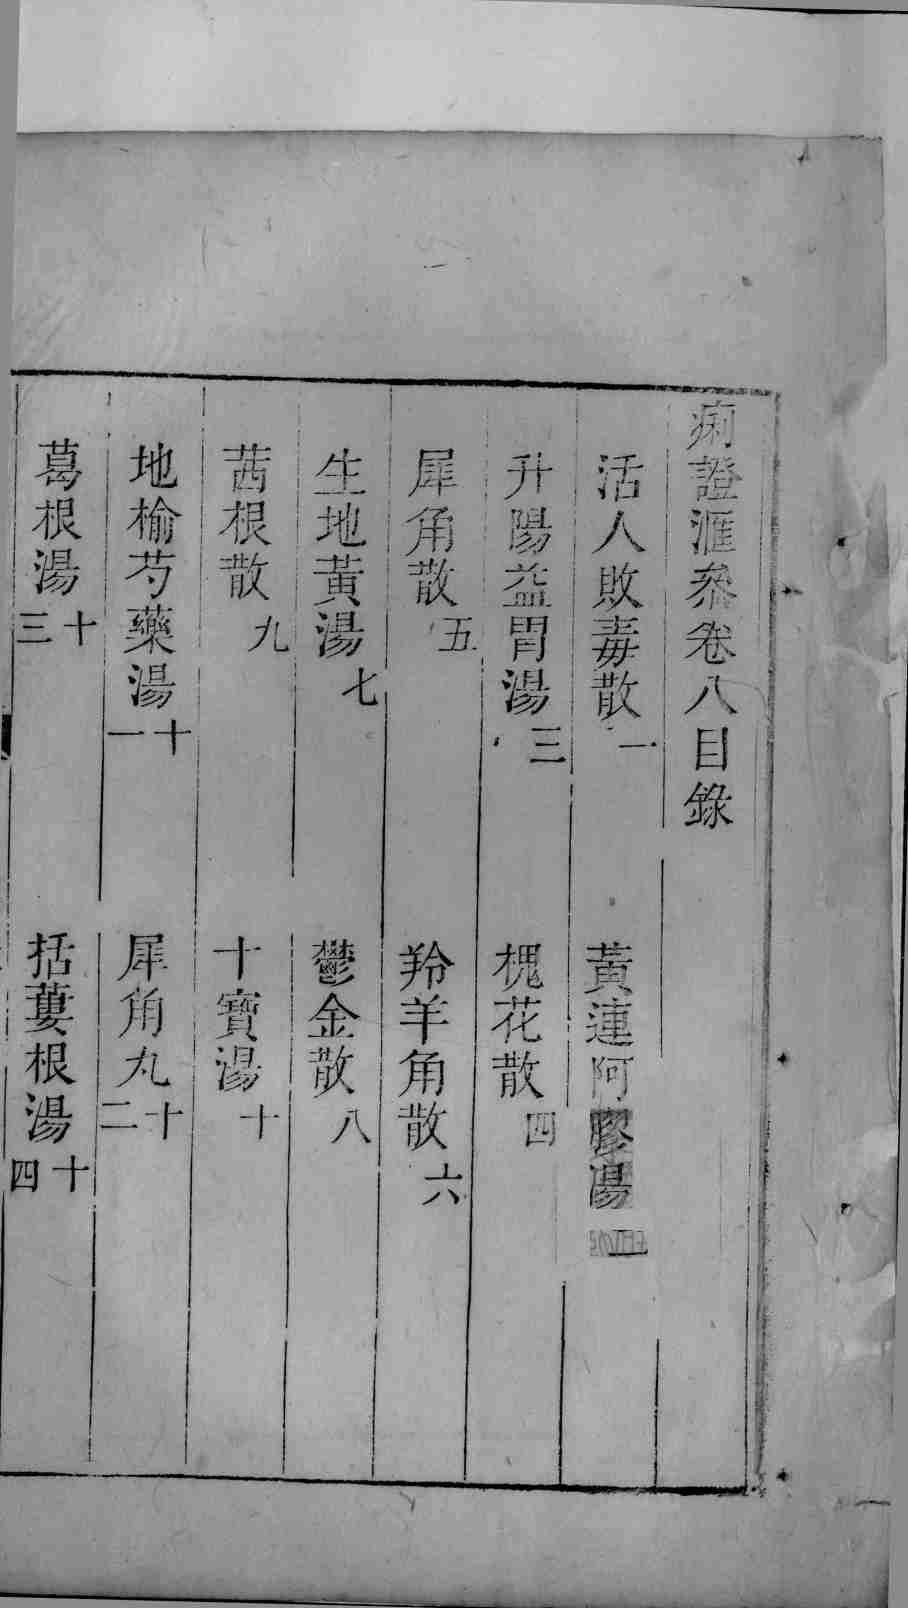 痢證滙叅卷八目錄
活人敗毒散一 黃連阿膠湯二
升陽益胃湯三 槐花散四
犀角散五 羚羊角散六
生地黃湯七 鬱金散八
茜根散九 十寶湯十
地榆芍藥湯十一 犀角丸十二
葛根湯十三 括蔞根湯十四